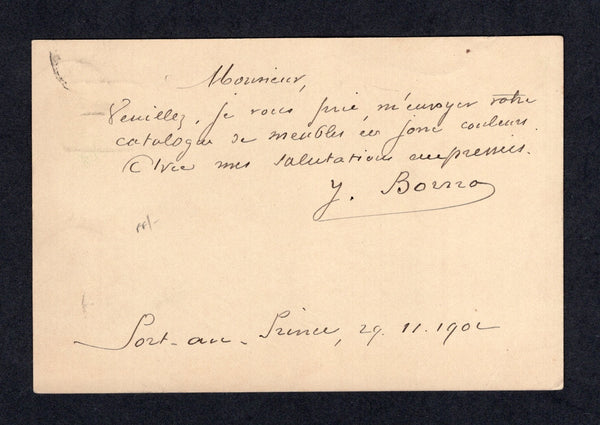 Monsieur,
Veuillez, je vous prie m'envoyer votre
catalogue de meubles en jonc couleurs.
Avec mes salutations empressées.
J. Borno
Port-au-Prince, 29.11.1901